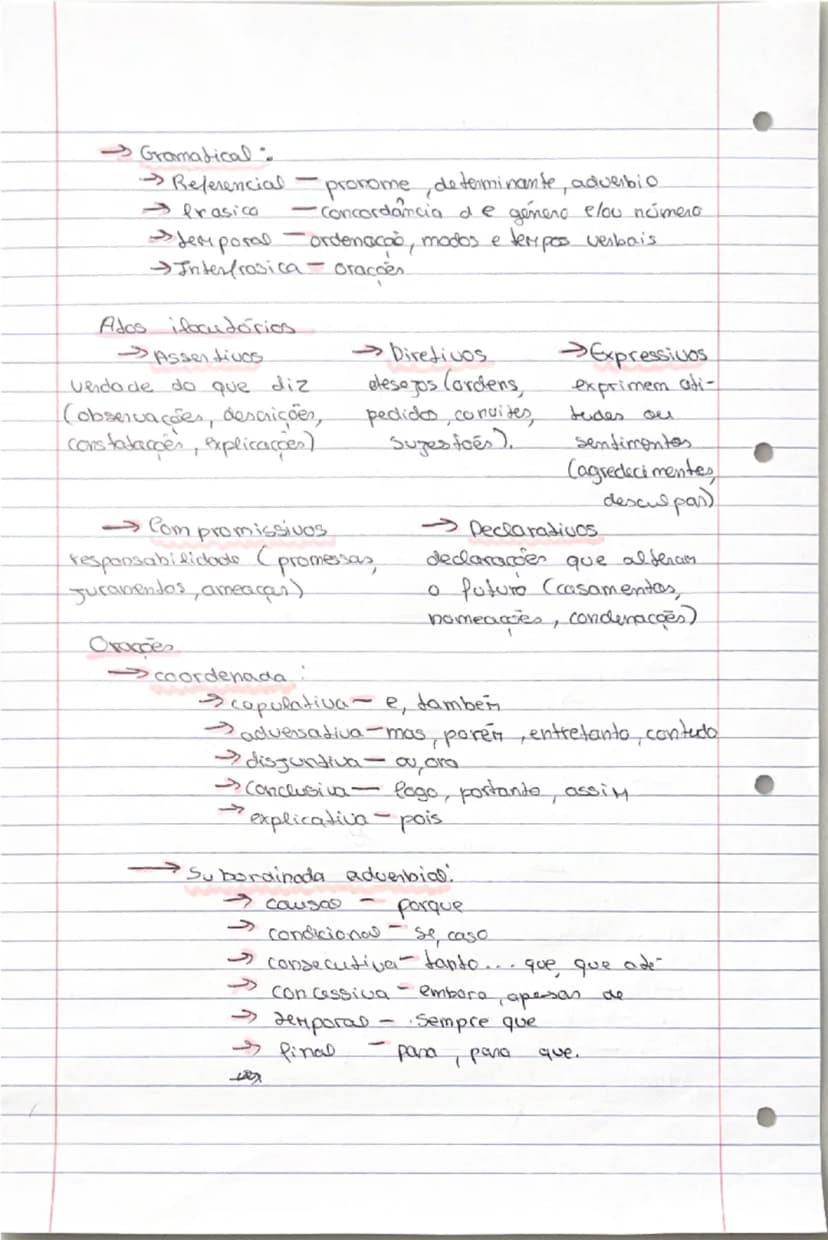 → Gramatical:
→ Referencial — pronome, determinante, adverbio
→ frasica — concordância de género e/ou número
→ temporal — ordenação, modos e tempos verbais
→ Interfrasica — orações
Atos ilocutórios
→ Assertivos → Diretivos → Expressivos
verdade do que diz desejos (ordens, exprimem ati-
(observações, descrições, pedidos, convites, tudes ou
constatações, explicações) sugestões). sentimentos
(agredecimentos,
desculpas)
→ Compromissivos → Declarativos
responsabilidade (promessas, declarações que alteram
juramentos, ameaças) o futuro (casamentos,
nomeações, condenações)
Orações
→ coordenada:
→ copulativa — e, também
→ adversativa — mas, porém, entretanto, contudo
→ disjuntiva — ou, ora
→ Conclusiva — logo, portanto, assim
→ explicativa — pois
→ Subordinada adverbial:
→ causal — porque
→ condicional — se, caso
→ consecutiva — tanto... que, que até
→ concessiva — embora, apesar de
→ temporal — sempre que
→ final — para, para que.